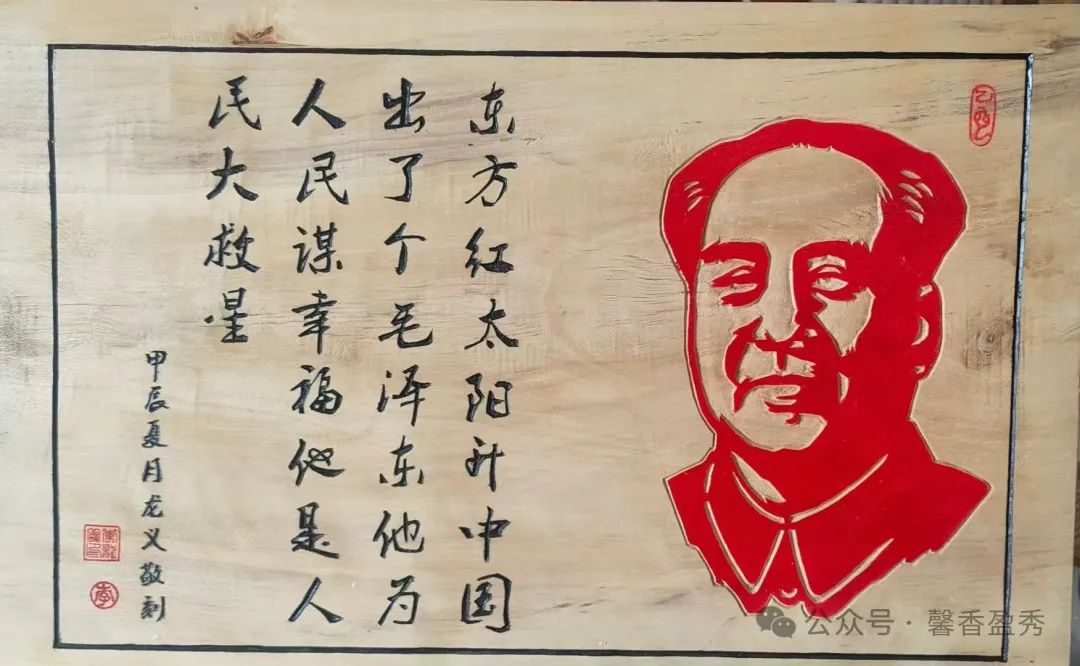 东方红太阳升中国
出了个毛泽东他为
人民谋幸福他是人
民大救星
甲辰夏月龙义敬刻
公众号·馨香盈秀